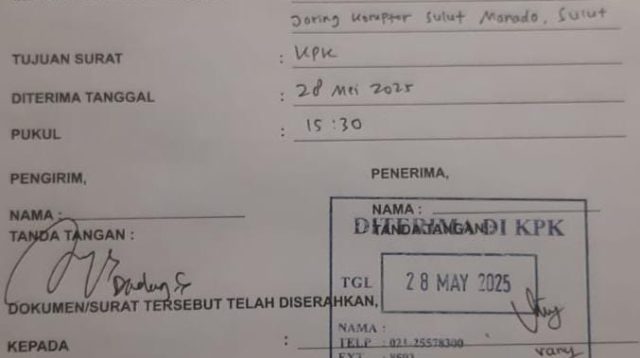 Joring Koruptor Sulut Manado, Sulut
TUJUAN SURAT : KPK
DITERIMA TANGGAL : 28 Mei 2025
PUKUL : 15:30
PENGIRIM, PENERIMA,
NAMA : NAMA :
TANDA TANGAN : TANDA TANGAN
DITERIMA DI KPK
TGL 28 MAY 2025
DOKUMEN/SURAT TERSEBUT TELAH DISERAHKAN,
NAMA :
KEPADA :
TELP : 021-25578300
EXT : 8593